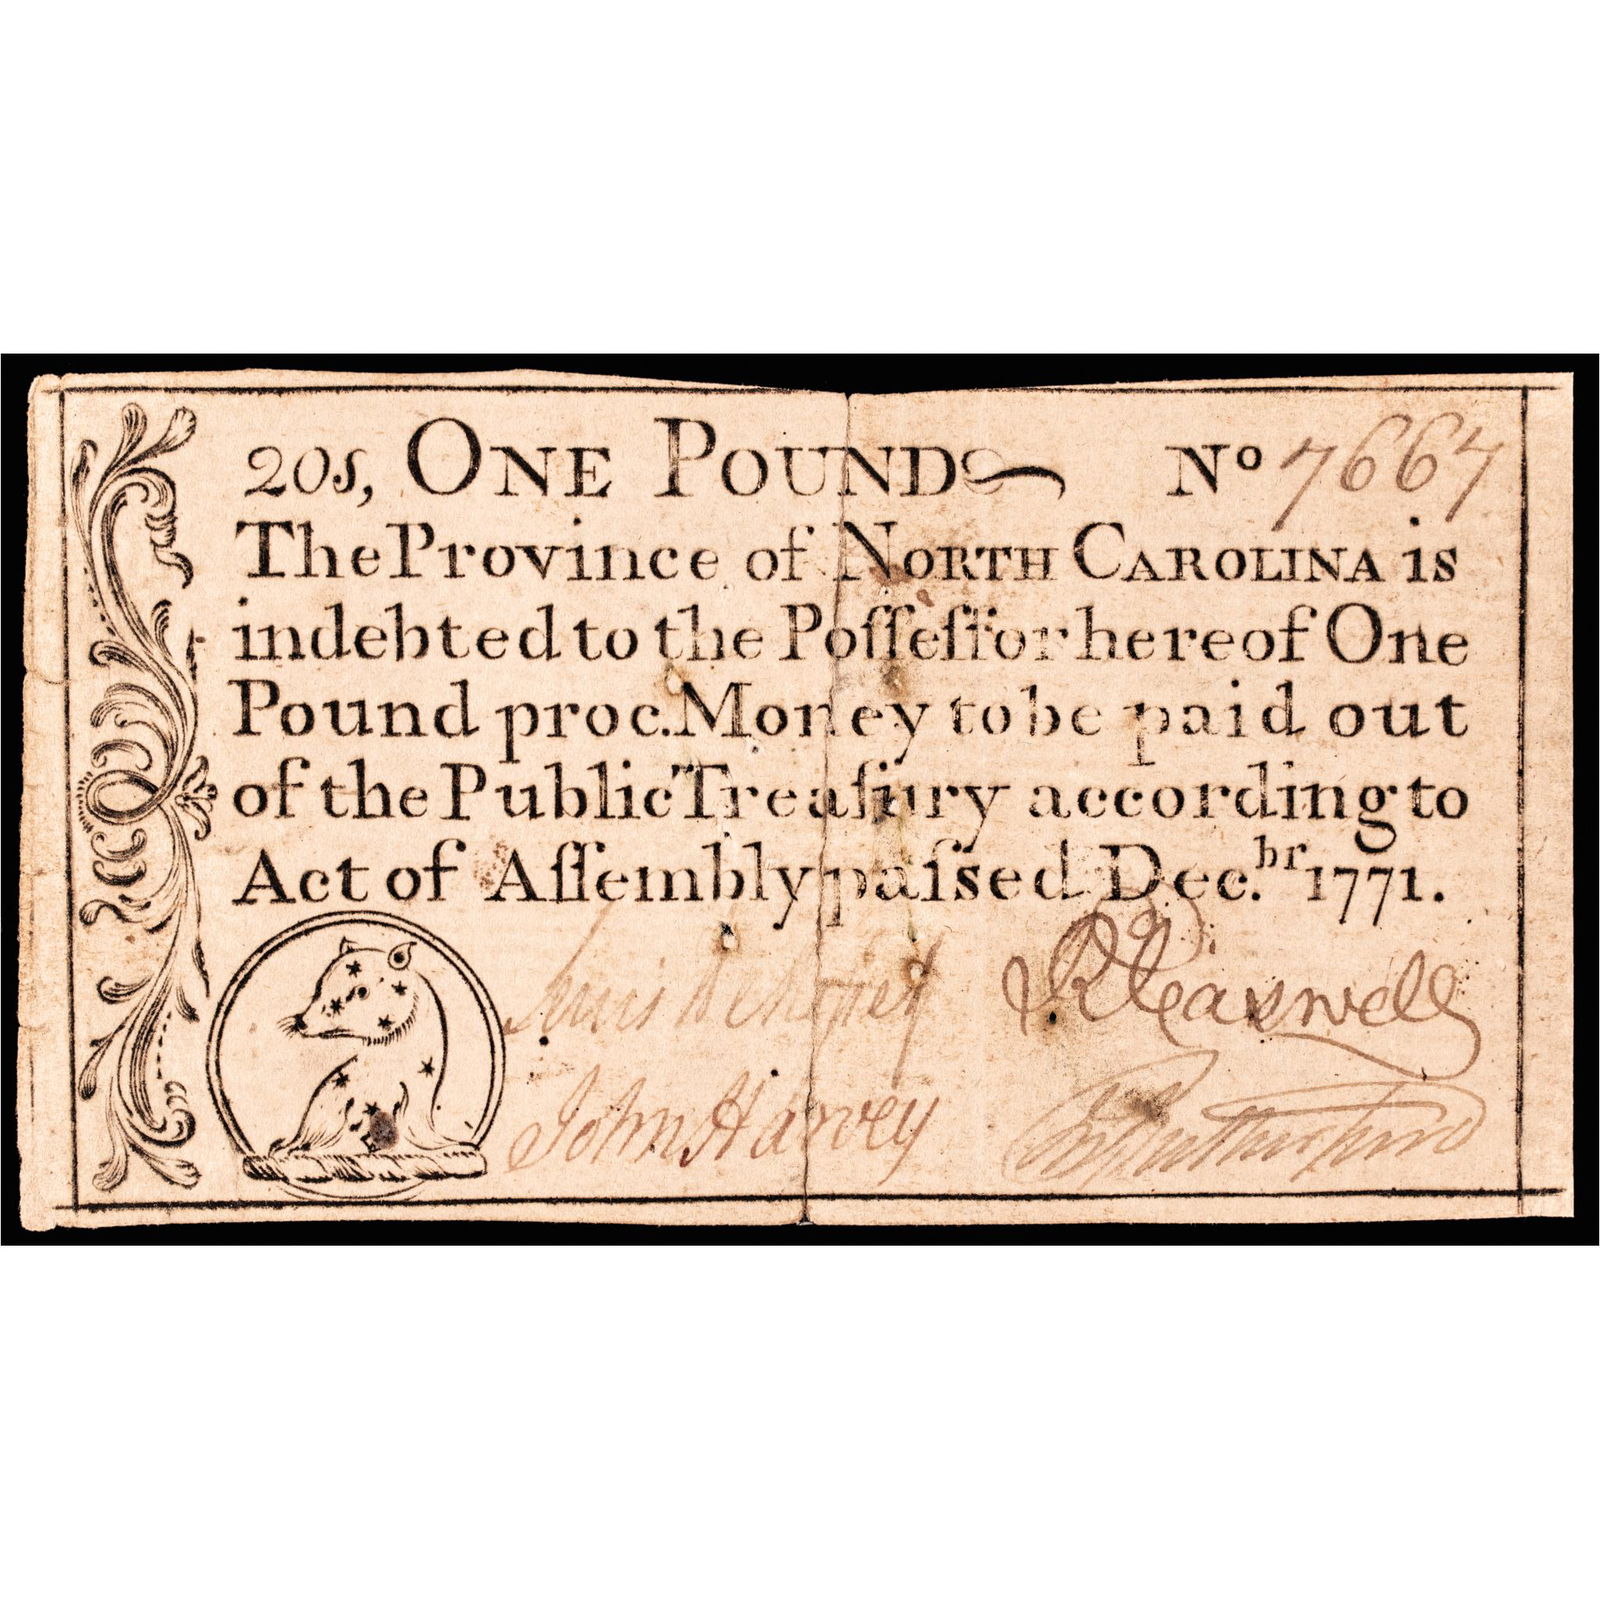 20s, ONE POUND Nº 7667
The Province of NORTH CAROLINA is
indebted to the Poſſeſſor hereof One
Pound proc. Money to be paid out
of the Public Treaſury according to
Act of Aſſembly paſsed Dec.br 1771.
Lewis DeRosset RCaswell
John Harvey Rutherfurd